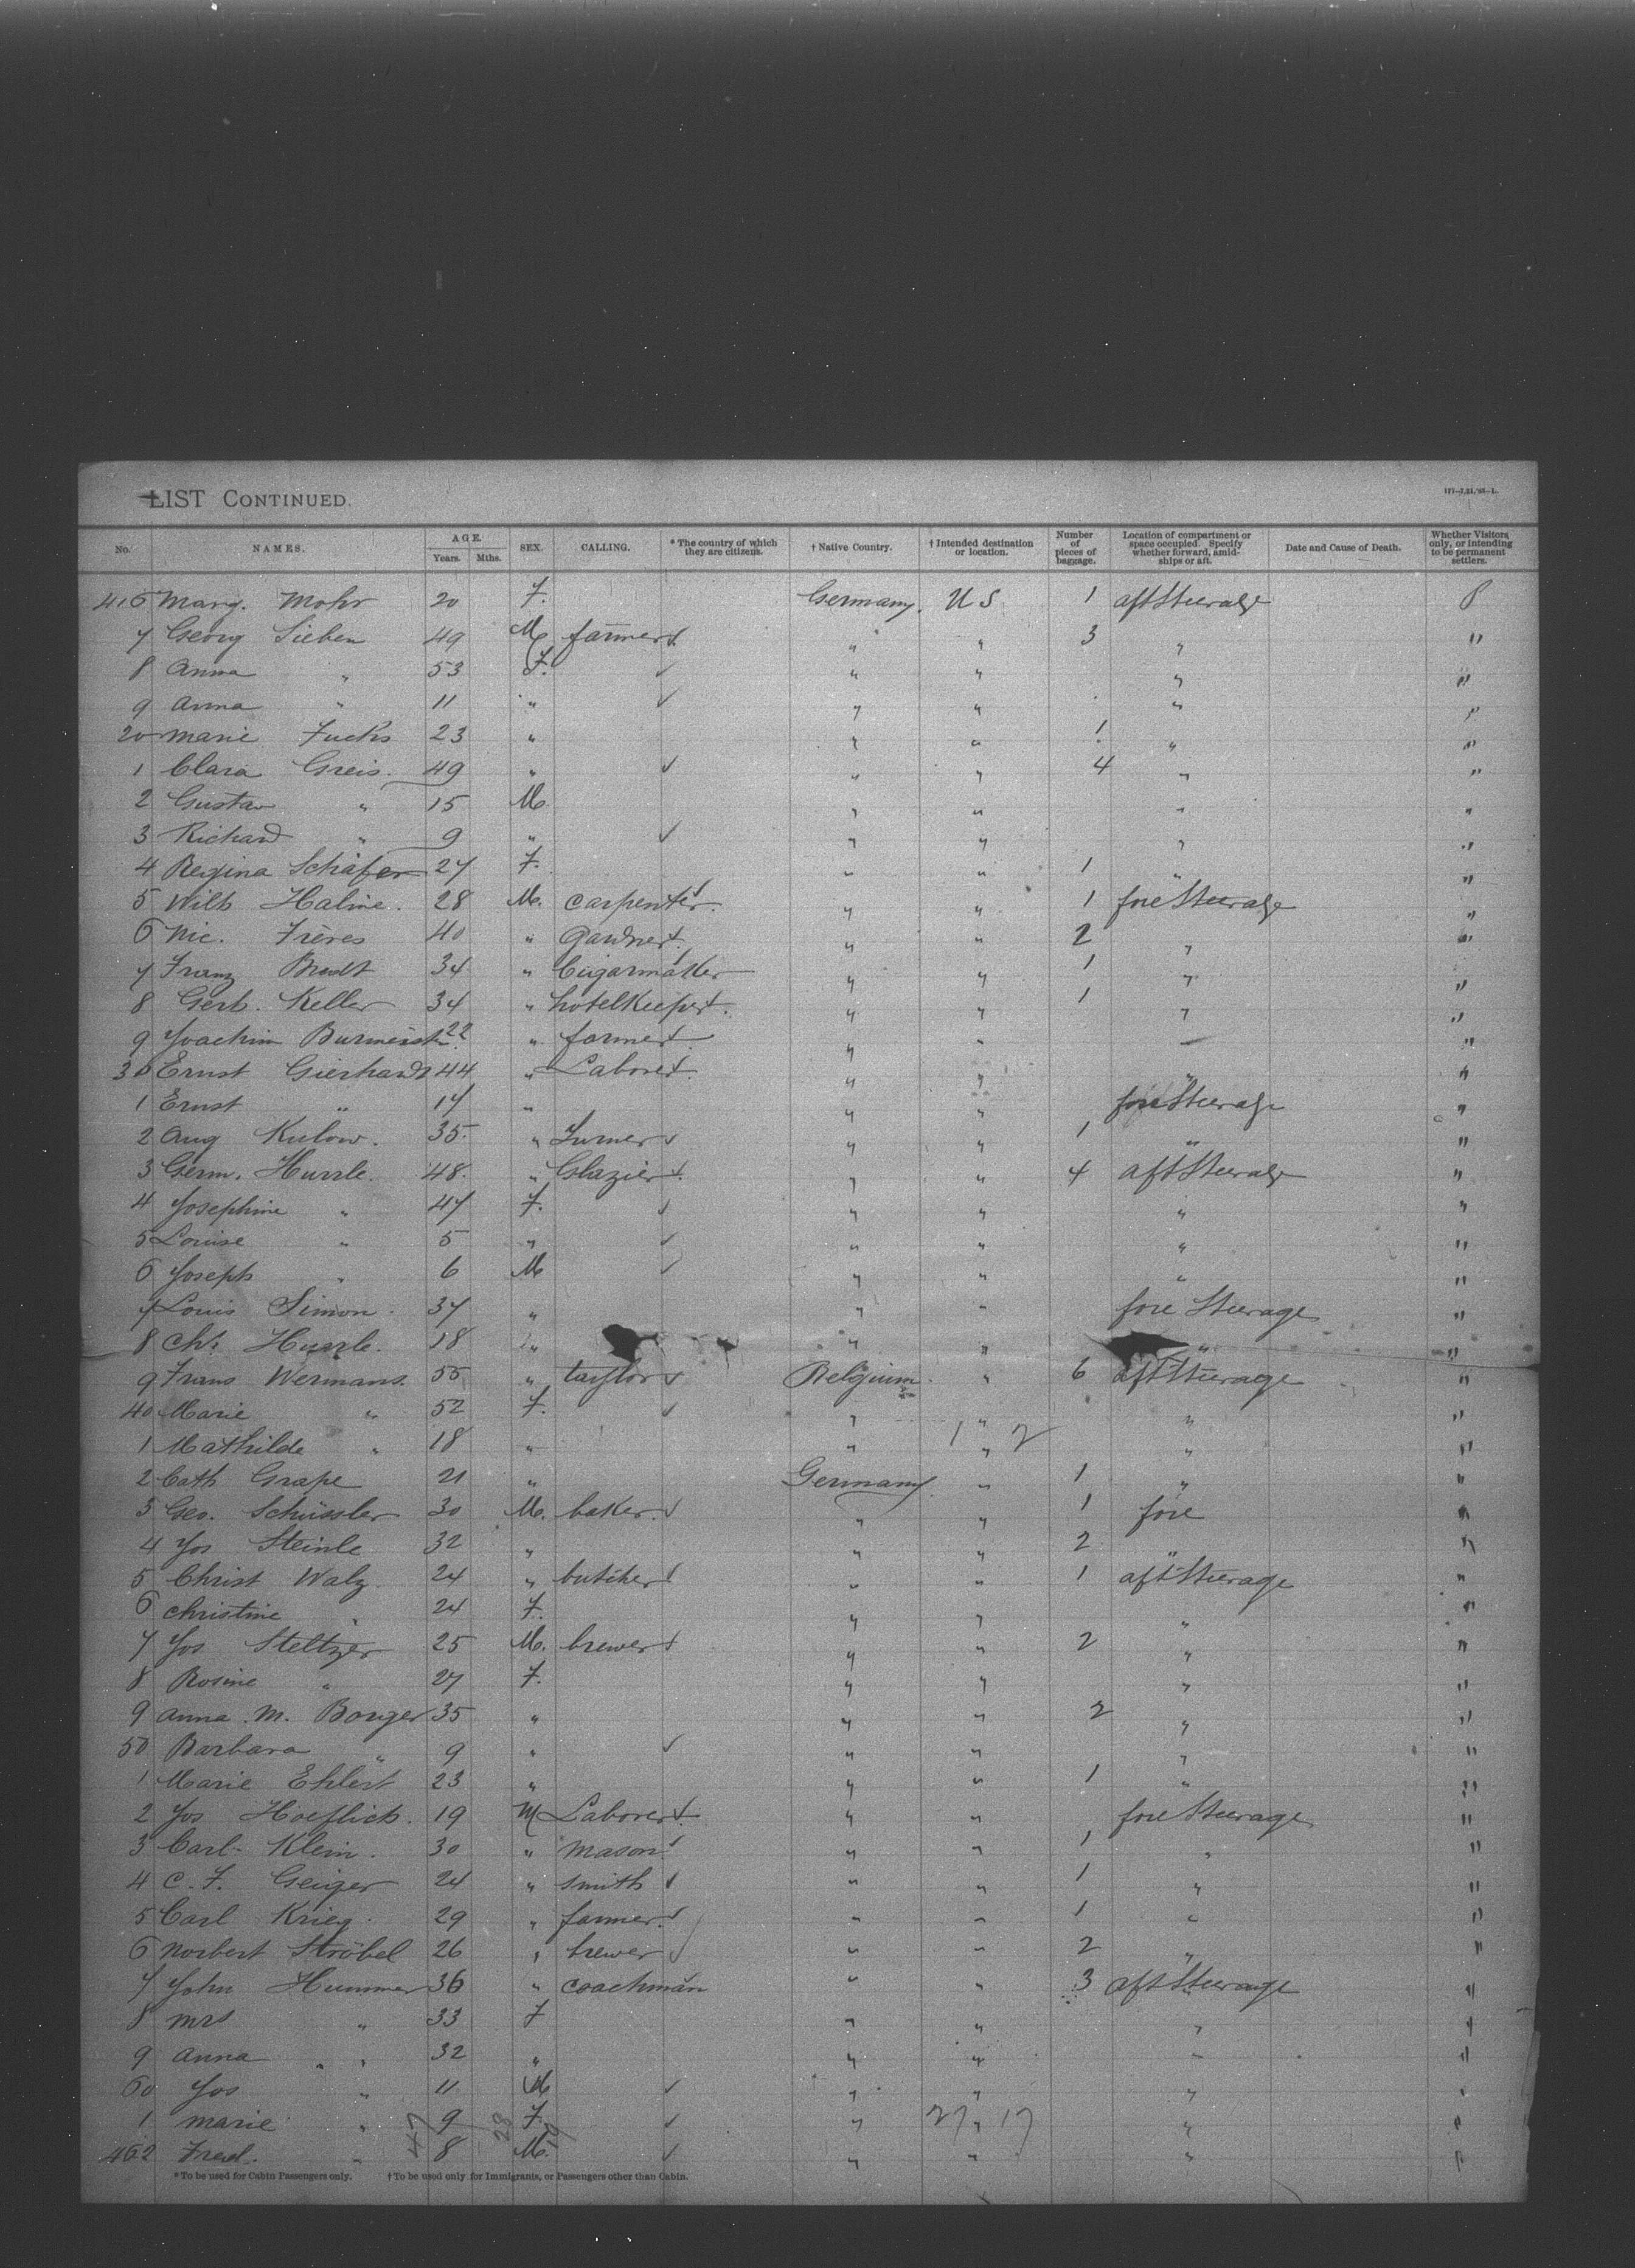 LIST CONTINUED.
177-7,31,'95-L.
No. NAMES. AGE. Years. Mths. SEX. CALLING. * The country of which they are citizens. † Native Country. † Intended destination or location. Number of pieces of baggage. Location of compartment or space occupied. Specify whether forward, amidships or aft. Date and Cause of Death. Whether Visitors only, or intending to be permanent settlers.
416 Marg. Mohr 20 F. Germany. U S 1 aft Steerage P
7 Georg Sieben 49 M. farmer " " 3 " "
8 Anna " 53 F. " " " "
9 Anna " 11 " " " " "
20 Marie Fuchs 23 " " " 1 " "
1 Clara Greis. 49 " " " 4 " "
2 Gustav " 15 M. " " " "
3 Richard " 9 " " " " "
4 Regina Schäfer 27 F. " " 1 " "
5 Wilh Halme. 28 M. carpenter. " " 1 fore Steerage "
6 Nic. Frères 40 " Gardner. " " 2 " "
7 Franz Bredt 34 " Cigarmaker " " 1 " "
8 Gerh. Keller 34 " hotelkeeper. " " 1 " "
9 Joachim Burmeister 22 " farmer. " " "
30 Ernst Gierhardt 44 " Laborer. " " " "
1 Ernst " 17 " " " fore Steerage "
2 Aug Kulow. 35. " Turner " " 1 " "
3 Germ. Hurrle. 48. " Glazier. " " 4 aft Steerage "
4 Josephine " 47 F. " " " "
5 Louise " 5 " " " " "
6 Joseph " 6 M " " " "
7 Louis Simon. 37 " " " fore Steerage "
8 Chr. Hurrle. 18 " " " " "
9 Frans Wermans. 55 " taylor Belgium. " 6 aft Steerage "
40 Marie " 52 F. " " " "
1 Mathilde " 18 " " 1 " 2 " "
2 Cath Grape 21 " Germany. " 1 " "
3 Geo. Schüssler 30 M. baker. " " 1 fore "
4 Jos Steinle 32 " " " 2 " "
5 Christ Walz. 24 " butcher " " 1 aft Steerage "
6 Christine " 24 F. " " " "
7 Jos Steltzer 25 M. brewer " " 2 " "
8 Rosine " 27 F. " " " "
9 Anna M. Borger 35 " " " 2 " "
50 Barbara " 9 " " " " "
1 Marie Ehlert 23 " " " 1 " "
2 Jos Hoeflich. 19 M Laborer. " " fore Steerage "
3 Carl Klein. 30 " mason. " " 1 " "
4 C. F. Geiger 24 " smith " " 1 " "
5 Carl Krieg. 29 " farmer. " " 1 " "
6 Norbert Ströbel 26 " brewer " " 2 " "
7 John Hummer 36 " coachman " " 3 aft Steerage "
8 Mrs " 33 F " " " "
9 Anna " " 32 " " " " "
60 Jos " 11 M " " " "
1 Marie " 9 F. " 27 " 17 " "
462 Fred. " 8 M. " " " "
47 28 19
* To be used for Cabin Passengers only. † To be used only for Immigrants, or Passengers other than Cabin.